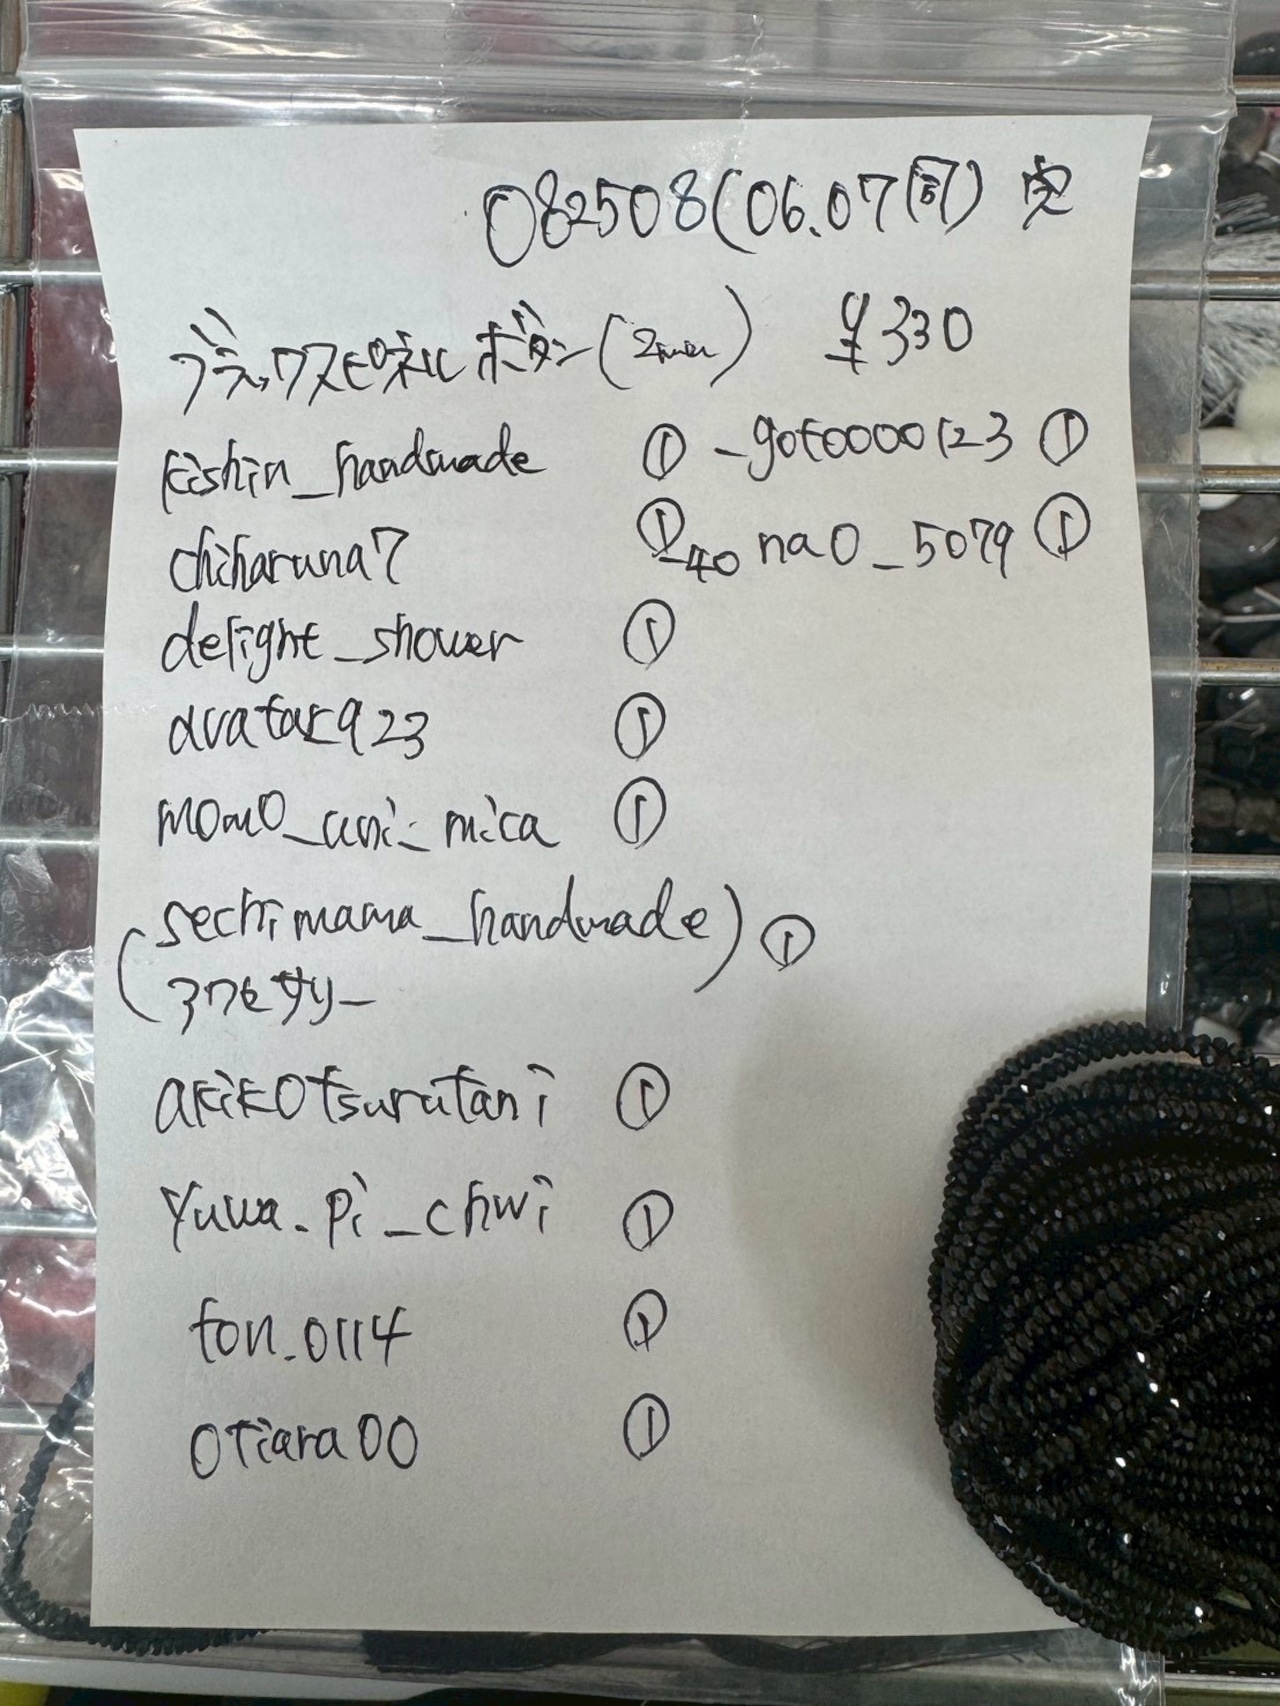 082508(06.07同)
ブラックスピネルボタン(2mm) ¥330
kishin_handmade ① _gotoooo123 ①
chiharuna7 ① _40nao_5079 ①
delight_shower ①
avatar923 ①
momo_uni_mica ①
(sechimama_handmade) ①
アクセサリー
akikotsurutani ①
yuwa.pi_chwi ①
ton.0114 ①
otiara00 ①